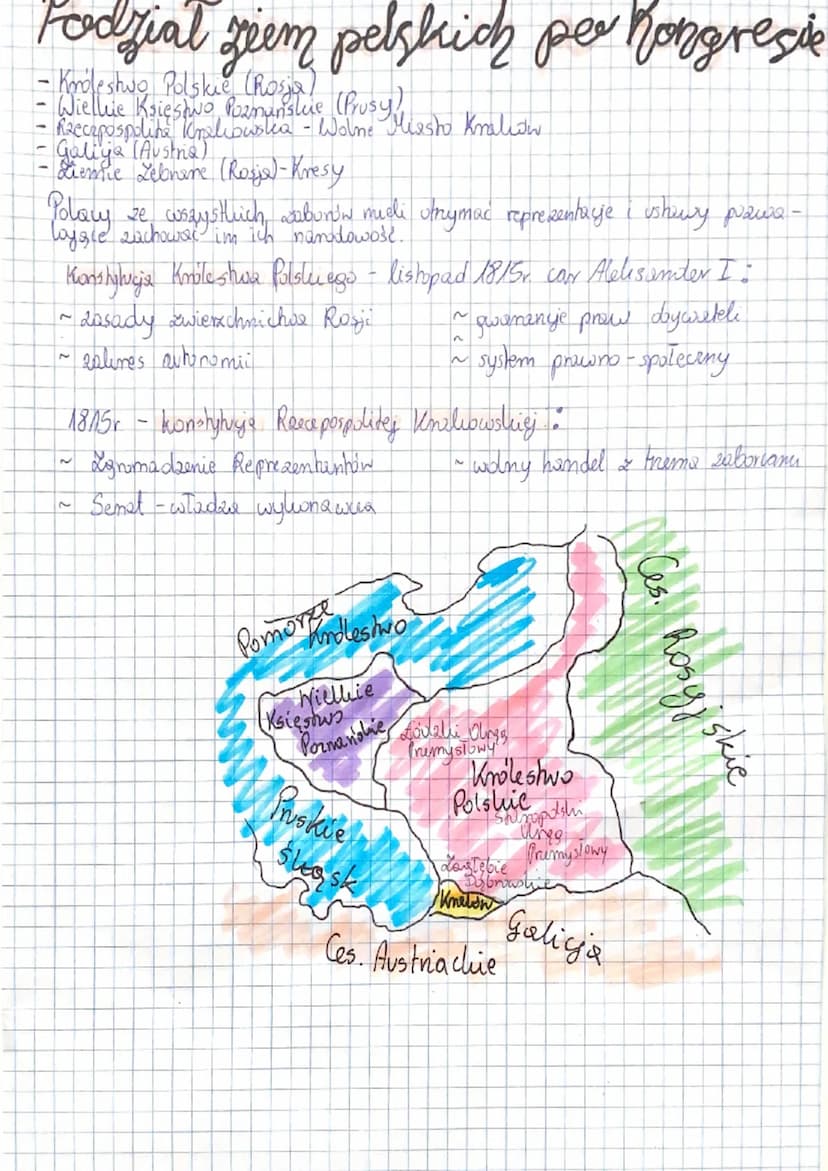 Podział ziem polskich po Kongresie
- Królestwo Polskie (Rosja)
- Wielkie Księstwo Poznańskie (Prusy)
- Rzeczpospolita Krakowska - Wolne Miasto Kraków
- Galicja (Austria)
- Ziemie Zebrane (Rosja) - Kresy
Polacy ze wszystkich zaborów mieli otrzymać reprezentacje i ustawy pozwa-
lające zachować im ich narodowość.
Konstytucja Królestwa Polskiego - listopad 1815r car Aleksander I :
~ zasady zwierzchnictwa Rosji
~ gwarancje praw obywateli
~ zakres autonomii
~ system prawno - społeczny
1815r - konstytucja Rzeczpospolitej Krakowskiej :
~ Zgromadzenie Reprezentantów
~ wolny handel z trzema zaborami
~ Senat - władza wykonawcza
Ces. Rosyjskie
Pomorze
Królestwo
Wielkie
Księstwo
Poznańskie
Łódzki Okręg
Przemysłowy
Królestwo
Polskie
Staropolski
Okręg
Przemysłowy
Pruskie
Śląsk
Zagłębie
Dąbrowskie
Kraków
Galicja
Ces. Austriackie